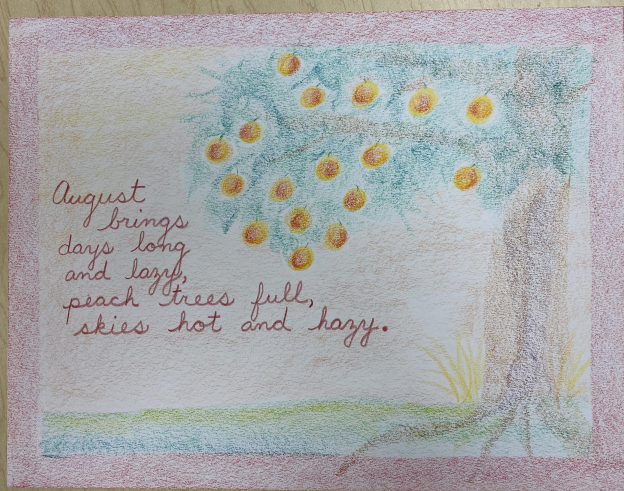 August
brings
days long
and lazy,
peach trees full,
skies hot and hazy.